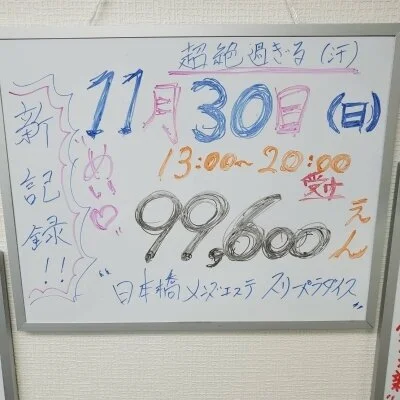 超絶過ぎる(汗)
新記録!!
11月30日(日)
めい♡
13:00~20:00
受付
99,600えん
"日本橋メンズエステ スリーパラダイス"